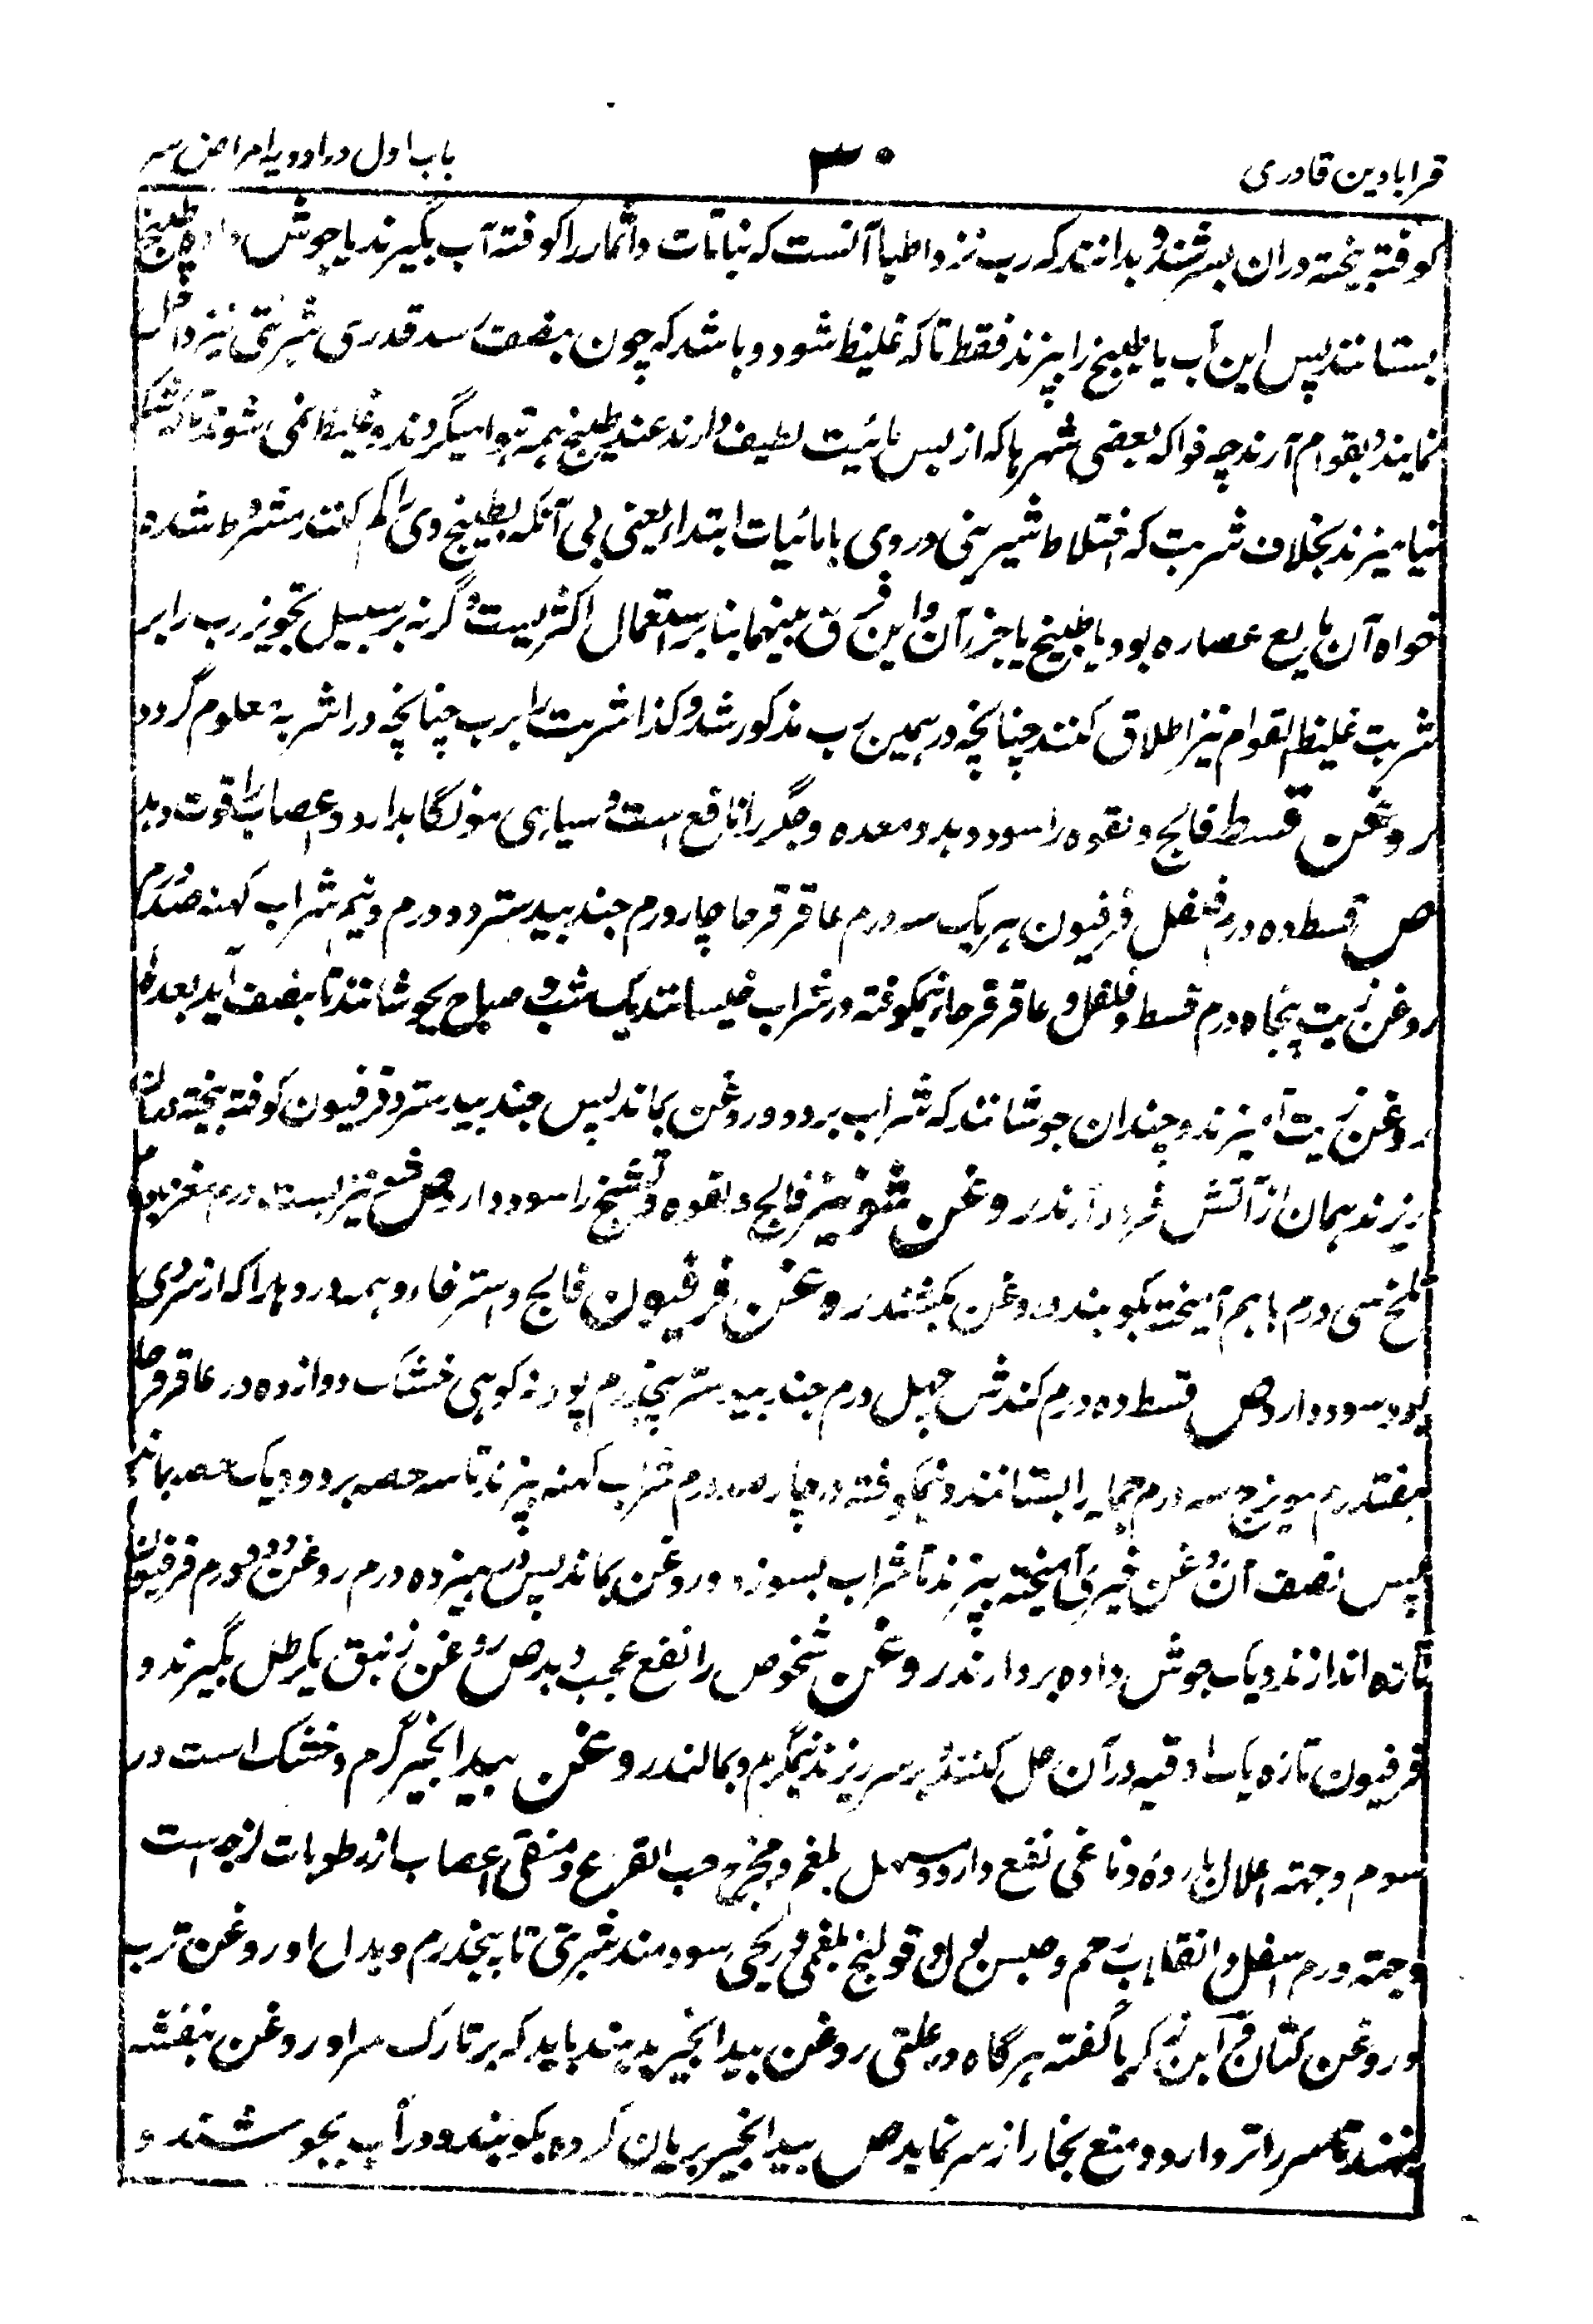 قرابادین قادری
۳۰
باب اول در ادویه امراض سر
کوفته بیخته دران بسرشند و بدانند که رب نزد اطبا آنست که نباتات و اثمار را کوفته آب بگیرند یا جوش داده طبیخ
بستانند پس این آب یا طبیخ را بپزند فقط تا که غلیظ شود و باشد که چون بنصف رسد قدری شیرینی نیز داخل
نمایند و بقوام آرند چه فواکه بعضی شهرها که از بس مائیت لطیف دارند عند طبیخ همه هوا میگردند و غلیظ نمی شوند تا که شکر
نیامیزند بخلاف شربت که اختلاط شیرینی در وی با مائیات ابتداء یعنی بی آنکه بطبیخ وی را کم کنند مشروط شده
خواه آن مایع عصاره بود یا طبیخ یا جز آن و این فرق بینهما بنا بر استعمال اکثریست و گرنه بر سبیل تجویز رب را بر
شربت غلیظ القوام نیز اطلاق کنند چنانچه در همین رب مذکور شد و کذا شربت را برب چنانچه در اشربه معلوم گردد
روغن قسط فالج و لقوه را سود دهد و معده و جگر را نافع است و سیاهی مو نگاه دارد و اعصاب را قوت دهد
ص قسط ده درم فلفل فرفیون هر یک سه درم عاقرقرحا چار درم جند بیدستر دو درم و نیم شراب کهنه صد درم
روغن زیت پنجاه درم قسط و فلفل و عاقرقرحا نیمکوفته در شراب خیسانند یک شب و صباح بجوشانند تا بنصف آید بعده
روغن زیت آمیزند و چندان جوشانند که شراب برود و روغن بماند پس جند بیدستر و فرفیون کوفته بیخته دران
ریزند همان از آتش فرود آرند روغن شونیز فالج و لقوه و تشنج را سود دارد ص شونیز بست درم مغز بادام
تلخ سی درم با هم آمیخته بکوبند و روغن بکشند روغن فرفیون فالج و استرخاء و همه دردها را که از سردی
بود سود دارد ص قسط ده درم کندش چهل درم جند بیدستر پنجدرم پودنه کوهی خشک دوازده درم عاقرقرحا
هفتدرم مویزج سه درم جمله را بستانند و نیمکوفته در چارصد درم شراب کهنه بپزند تا سه حصه برود و یک حصه بماند
پس نصف آن روغن خیری آمیخته بپزند تا شراب بسوزد و روغن بماند پس در هیزده درم روغن دو درم فرفیون
تازه اندازند و یک جوش داده بردارند روغن شخوص را نفع عجب دهد ص روغن زنبق یکرطل بگیرند و
فرفیون تازه یک اوقیه در آن حل کنند و بر سر ریزند نیمگرم و بمالند روغن بیدانجیر گرم و خشک است در
سوم و جهته اعلال بارده دماغی نفع دارد و مسهل بلغم و مخرج حب القرع و منقی اعصاب از رطوبات لزجه است
و جهته ورم اسفل و انقلاب رحم و حبس بول و قولنج بلغمی و ریحی سودمند شربتی تا پنجدرم و بدل او روغن ترب
و روغن کتان و ابن زکریا گفته هرگاه در علتی روغن بیدانجیر بدهند باید که بر تارک سر او روغن بنفشه
نهند تا سر را تر دارد و منع بخار از سر نماید ص بیدانجیر بریان کرده بکوبند و در آب بجوشند و